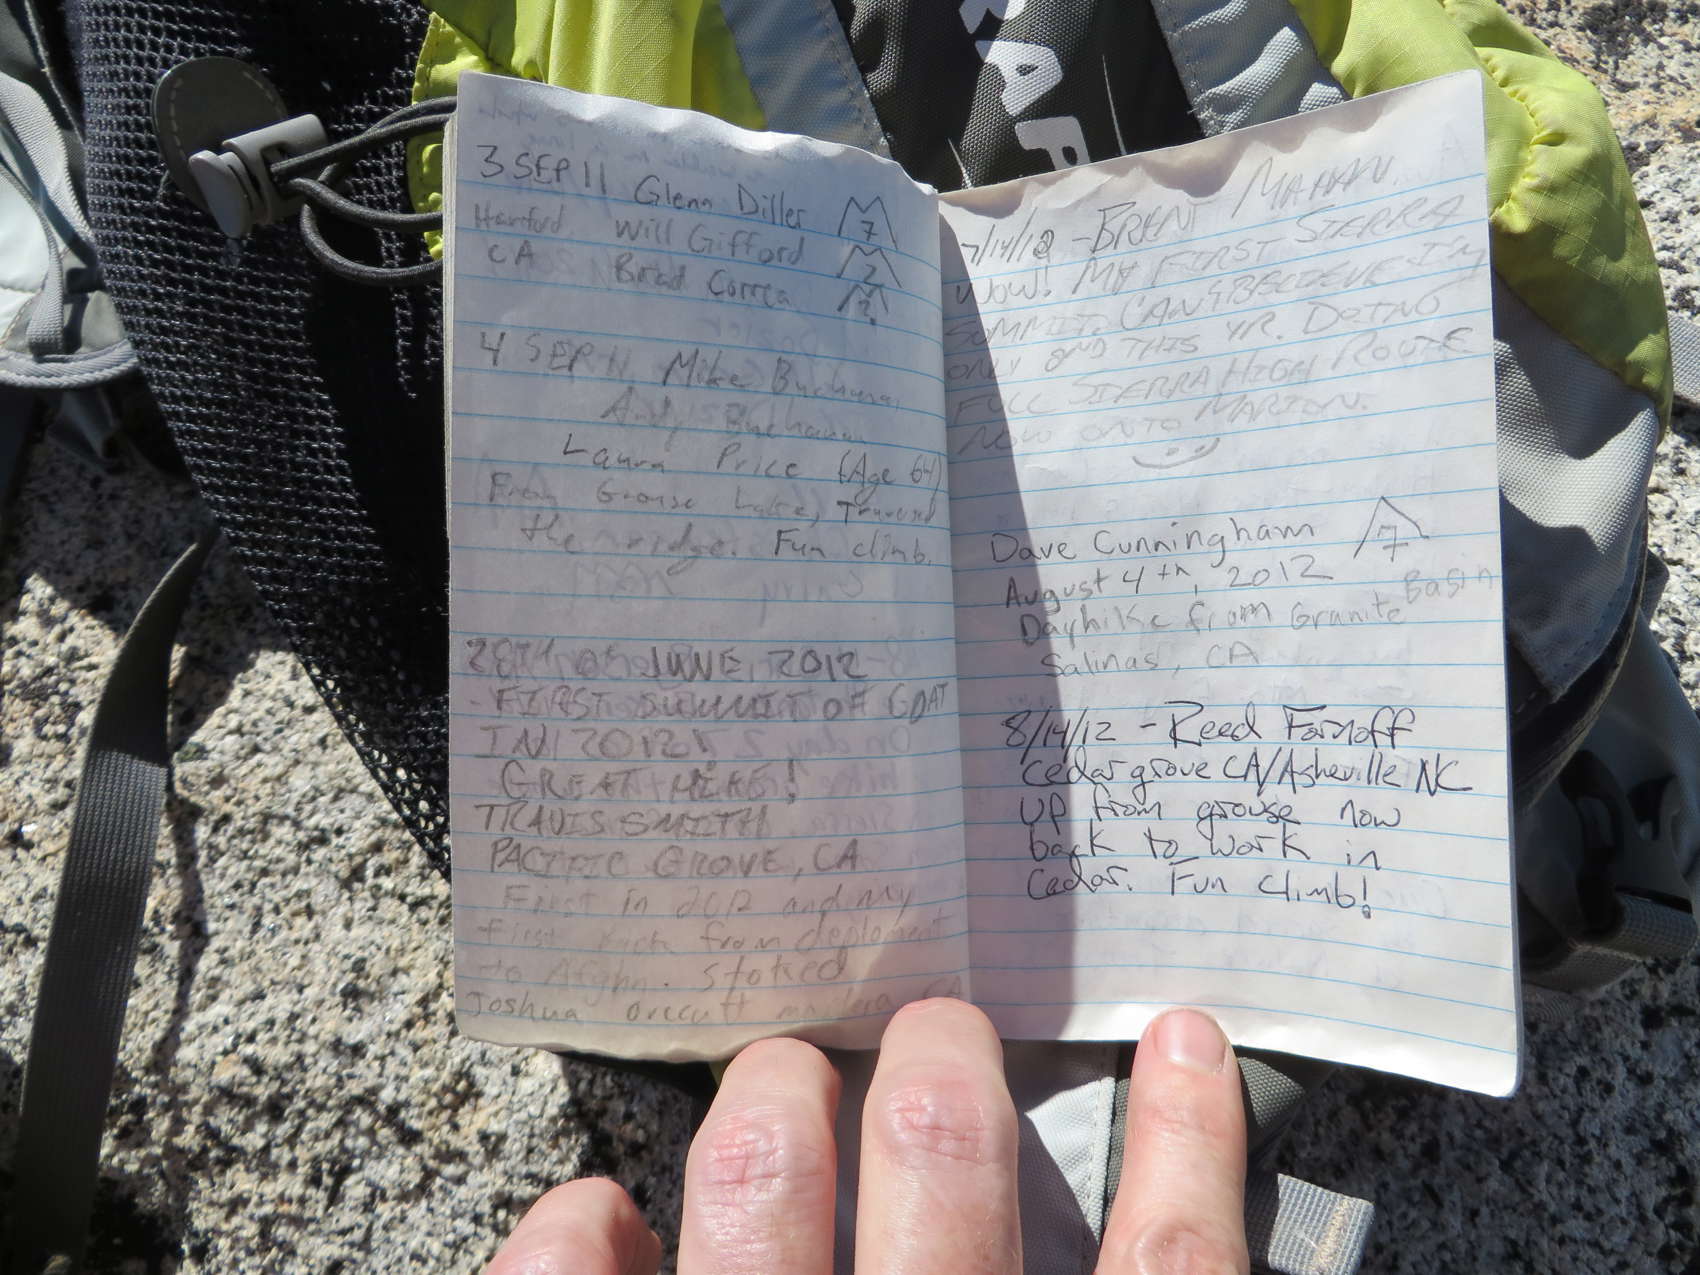 RAP
3 SEP 11 Glenn Diller 7
Hanford Will Gifford 2
CA Brad Correa 2
4 SEP 11 Mike Buchanan
Andy Buchanan
Laura Price (Age 64)
From Grouse Lake, Traversed
the ridge. Fun climb.
28TH OF JUNE, 2012
- FIRST SUMMIT OF GOAT
IN 2012!
GREAT HIKE!
TRAVIS SMITH
PACIFIC GROVE, CA
First in 2012 and my
first back from deploment
to Afghn. stoked
Joshua madera CA
7/14/12 - BRENT MAHAN
WOW! MY FIRST SIERRA
SUMMIT. CAN'T BELIEVE I'M
ONLY 2ND THIS YR. DOING
FULL SIERRA HIGH ROUTE
NOW ONTO MARION.
Dave Cunningham 7
August 4th, 2012
Dayhike from Granite Basin
Salinas, CA
8/14/12 - Reed Fornoff
Cedar grove CA/Asheville NC
UP from grouse now
back to work in
Cedar. Fun climb!